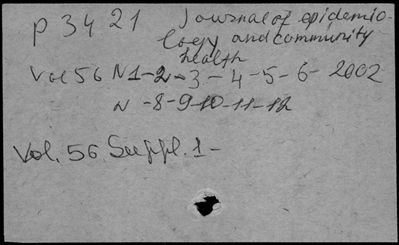 P 3421 Journal of epidemio-
logy and community
health
Vol 56 N 1-2-3-4-5-6- 2002
N -8-9-10-11-12
Vol. 56 Suppl. 1-